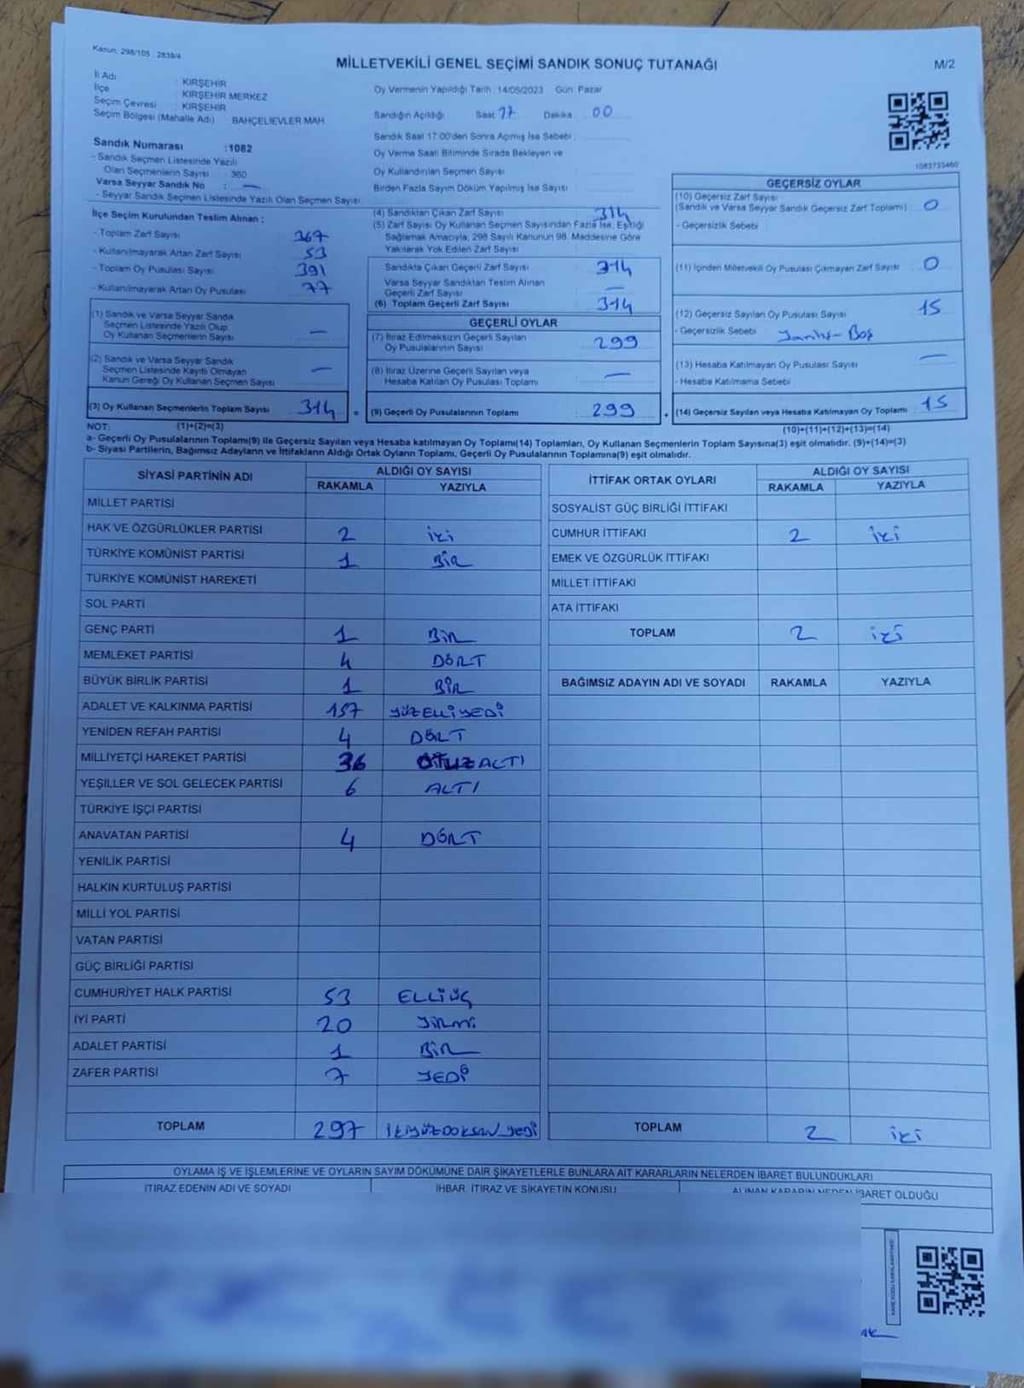 Kanun: 298/105 2839/4
MİLLETVEKİLİ GENEL SEÇİMİ SANDIK SONUÇ TUTANAĞI
M/2
İl Adı : KIRŞEHİR
İlçe : KIRŞEHİR MERKEZ
Seçim Çevresi : KIRŞEHİR
Seçim Bölgesi (Mahalle Adı) BAHÇELİEVLER MAH
Sandık Numarası :1082
- Sandık Seçmen Listesinde Yazılı
Olan Seçmenlerin Sayısı : 360
Varsa Seyyar Sandık No : —
- Seyyar Sandık Seçmen Listesinde Yazılı Olan Seçmen Sayısı
Oy Vermenin Yapıldığı Tarih :14/05/2023 Gün: Pazar
Sandığın Açıldığı Saat 17 Dakika 00
Sandık Saat 17:00'den Sonra Açılmış İse Sebebi
Oy Verme Saati Bitiminde Sırada Bekleyen ve
Oy Kullandırılan Seçmen Sayısı
Birden Fazla Sayım Döküm Yapılmış İse Sayısı
1083735460
İlçe Seçim Kurulundan Teslim Alınan :
- Toplam Zarf Sayısı 367
- Kullanılmayarak Artan Zarf Sayısı 53
- Toplam Oy Pusulası Sayısı 391
- Kullanılmayarak Artan Oy Pusulası 77
(1) Sandık ve Varsa Seyyar Sandık
Seçmen Listesinde Yazılı Olup
Oy Kullanan Seçmenlerin Sayısı —
(2) Sandık ve Varsa Seyyar Sandık
Seçmen Listesinde Kayıtlı Olmayan
Kanun Gereği Oy Kullanan Seçmen Sayısı —
(3) Oy Kullanan Seçmenlerin Toplam Sayısı 314
(4) Sandıktan Çıkan Zarf Sayısı 314
(5) Zarf Sayısı Oy Kullanan Seçmen Sayısından Fazla İse, Eşitliği
Sağlamak Amacıyla, 298 Sayılı Kanunun 98. Maddesine Göre
Yakılarak Yok Edilen Zarf Sayısı
Sandıkta Çıkan Geçerli Zarf Sayısı 314
Varsa Seyyar Sandıktan Teslim Alınan
Geçerli Zarf Sayısı —
(6) Toplam Geçerli Zarf Sayısı 314
GEÇERLİ OYLAR
(7) İtiraz Edilmeksizin Geçerli Sayılan
Oy Pusulalarının Sayısı 299
(8) İtiraz Üzerine Geçerli Sayılan veya
Hesaba Katılan Oy Pusulası Toplamı —
(9) Geçerli Oy Pusulalarının Toplamı 299
GEÇERSİZ OYLAR
(10) Geçersiz Zarf Sayısı
(Sandık ve Varsa Seyyar Sandık Geçersiz Zarf Toplamı) 0
- Geçersizlik Sebebi
(11) İçinden Milletvekili Oy Pusulası Çıkmayan Zarf Sayısı 0
(12) Geçersiz Sayılan Oy Pusulası Sayısı 15
- Geçersizlik Sebebi Yanlış-Boş
(13) Hesaba Katılmayan Oy Pusulası Sayısı —
- Hesaba Katılmama Sebebi
(14) Geçersiz Sayılan veya Hesaba Katılmayan Oy Toplamı 15
NOT: (1)+(2)=(3) (10)+(11)+(12)+(13)=(14)
a- Geçerli Oy Pusulalarının Toplamı(9) ile Geçersiz Sayılan veya Hesaba katılmayan Oy Toplamı(14) Toplamları, Oy Kullanan Seçmenlerin Toplam Sayısına(3) eşit olmalıdır. (9)+(14)=(3)
b- Siyasi Partilerin, Bağımsız Adayların ve İttifakların Aldığı Ortak Oyların Toplamı, Geçerli Oy Pusulalarının Toplamına(9) eşit olmalıdır.
SİYASİ PARTİNİN ADI ALDIĞI OY SAYISI
RAKAMLA YAZIYLA
MİLLET PARTİSİ
HAK VE ÖZGÜRLÜKLER PARTİSİ 2 iki
TÜRKİYE KOMÜNİST PARTİSİ 1 BİR
TÜRKİYE KOMÜNİST HAREKETİ
SOL PARTİ
GENÇ PARTİ 1 BİR
MEMLEKET PARTİSİ 4 DÖRT
BÜYÜK BİRLİK PARTİSİ 1 BİR
ADALET VE KALKINMA PARTİSİ 157 YÜZELLİYEDİ
YENİDEN REFAH PARTİSİ 4 DÖRT
MİLLİYETÇİ HAREKET PARTİSİ 36 OTUZALTI
YEŞİLLER VE SOL GELECEK PARTİSİ 6 ALTI
TÜRKİYE İŞÇİ PARTİSİ
ANAVATAN PARTİSİ 4 DÖRT
YENİLİK PARTİSİ
HALKIN KURTULUŞ PARTİSİ
MİLLİ YOL PARTİSİ
VATAN PARTİSİ
GÜÇ BİRLİĞİ PARTİSİ
CUMHURİYET HALK PARTİSİ 53 ELLİÜÇ
İYİ PARTİ 20 YİRMİ
ADALET PARTİSİ 1 BİR
ZAFER PARTİSİ 7 YEDİ
TOPLAM 297 İKİYÜZDOKSAN YEDİ
İTTİFAK ORTAK OYLARI ALDIĞI OY SAYISI
RAKAMLA YAZIYLA
SOSYALİST GÜÇ BİRLİĞİ İTTİFAKI
CUMHUR İTTİFAKI 2 iki
EMEK VE ÖZGÜRLÜK İTTİFAKI
MİLLET İTTİFAKI
ATA İTTİFAKI
TOPLAM 2 iki
BAĞIMSIZ ADAYIN ADI VE SOYADI RAKAMLA YAZIYLA
TOPLAM 2 iki
OYLAMA İŞ VE İŞLEMLERİNE VE OYLARIN SAYIM DÖKÜMÜNE DAİR ŞİKAYETLERLE BUNLARA AİT KARARLARIN NELERDEN İBARET BULUNDUKLARI
İTİRAZ EDENİN ADI VE SOYADI İHBAR, İTİRAZ VE ŞİKAYETİN KONUSU ALINAN KARARIN NEDEN İBARET OLDUĞU